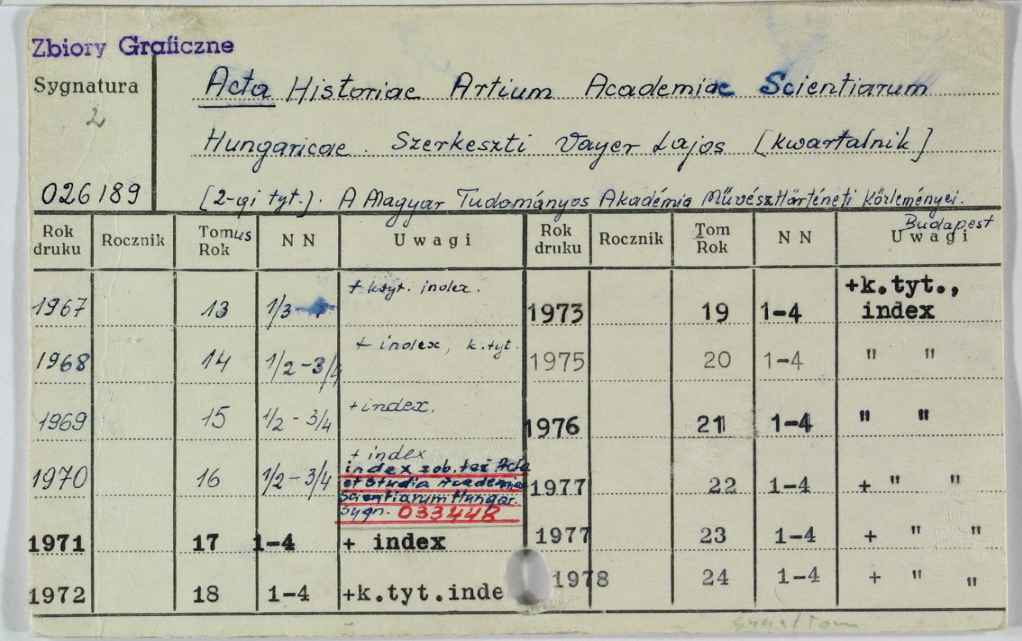 Zbiory Graficzne
Sygnatura
2
026189
Acta Historiae Artium Academiae Scientiarum
Hungaricae. Szerkeszti Vayer Lajos [kwartalnik]
[2-gi tyt.]. A Magyar Tudományos Akadémia Művészettörténeti Közleményei.
Budapest
Rok druku Rocznik Tomus Rok N N Uwagi Rok druku Rocznik Tom Rok N N Uwagi
1967 13 1/3-4 + k.tyt. index. 1973 19 1-4 +k.tyt., index
1968 14 1/2-3/4 + index, k.tyt. 1975 20 1-4 " "
1969 15 1/2-3/4 +index. 1976 21 1-4 " "
1970 16 1/2-3/4 + index 1977 22 1-4 + " "
index zob. też Acta
et Studia Academiae
Scientiarum Hungar.
Sygn. 033448
1971 17 1-4 + index 1977 23 1-4 + " "
1972 18 1-4 +k.tyt.inde 1978 24 1-4 + " "